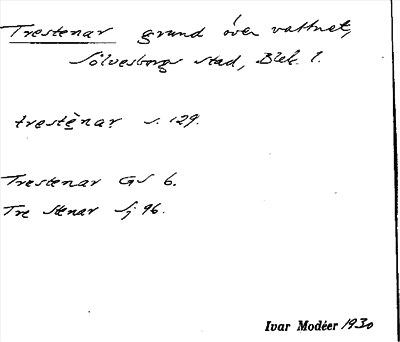 Trestenar grund över vattnet,
Sölvesborgs stad, Blek. l.
trestènar s. 129.
Trestenar GS 6.
Tre stenar Sj 96.
Ivar Modéer 1930